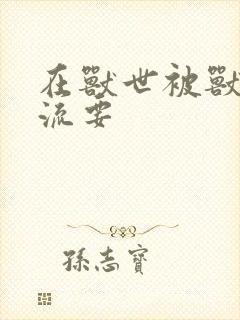 在獸世被獸
流要
孫志寶